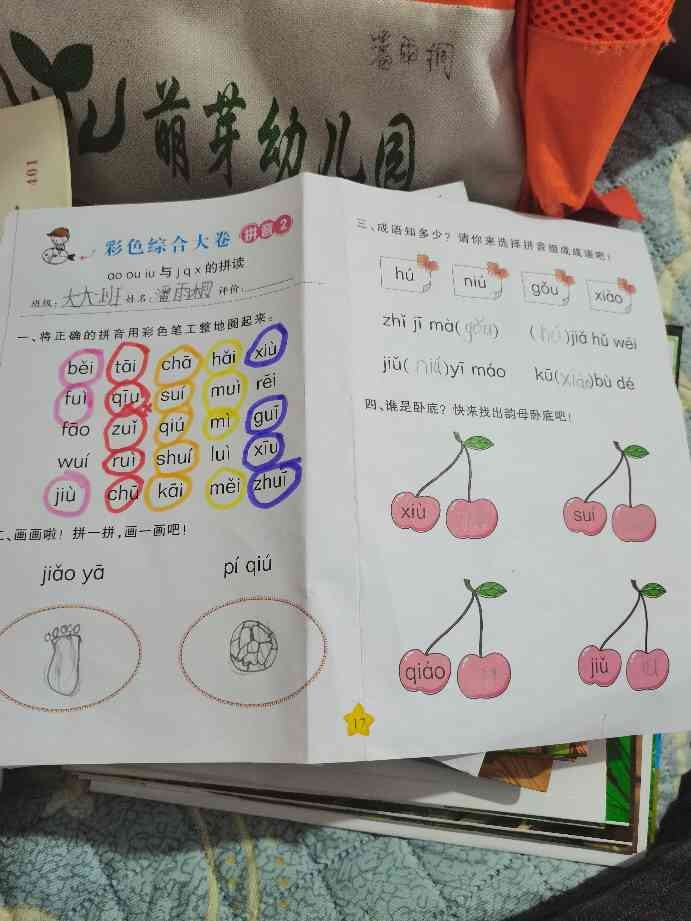 萌芽幼儿园
401
彩色综合大卷 拼音2
ao ou iu 与 j q x 的拼读
班级: 大大班 姓名: 潘雨桐 评价:
一、将正确的拼音用彩色笔工整地圈起来。
běi tāi chā hǎi xiù
fuì qīu suí muì rēi
fāo zuǐ qiú mì guī
wuí ruì shuí luì xīu
jiù chū kāi měi zhuī
二、画画啦！拼一拼，画一画吧！
jiǎo yā pí qiú
三、成语知多少？请你来选择拼音组成成语吧！
hú niú gǒu xiào
zhǐ jī mà(gǒu) (hú)jiǎ hǔ wēi
jiǔ(niú)yī máo kū(xiào)bù dé
四、谁是卧底？快来找出韵母卧底吧！
xiù suí
qiáo jiǔ
17